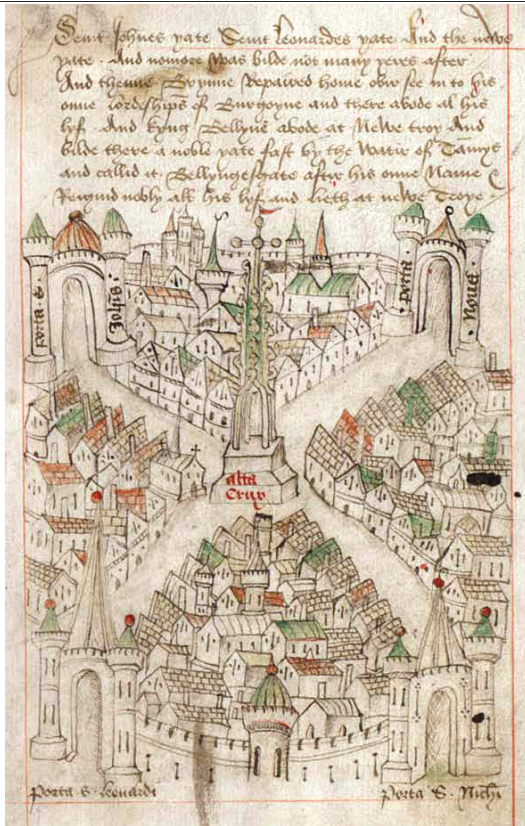 Seint Johnes yate Seint Leonardes yate And the newe
yate . And nomore was bilde not many yeres after
And thenne Brynne Repaired home ovir see in to his
onne lordeships of Burgoyne and there abode al his
lyf . And kyng Bellyne abode at Newe troy And
bilde there a noble yate fast by the watir of Tamys
and callid it . Bellyngesyate aftir his onne Name &
Reigned nobly all his lyf and lieth at newe Troye .
porta S Johīs
porta Nova
alta
Crux
porta S . Leonardi
porta S . Nichi